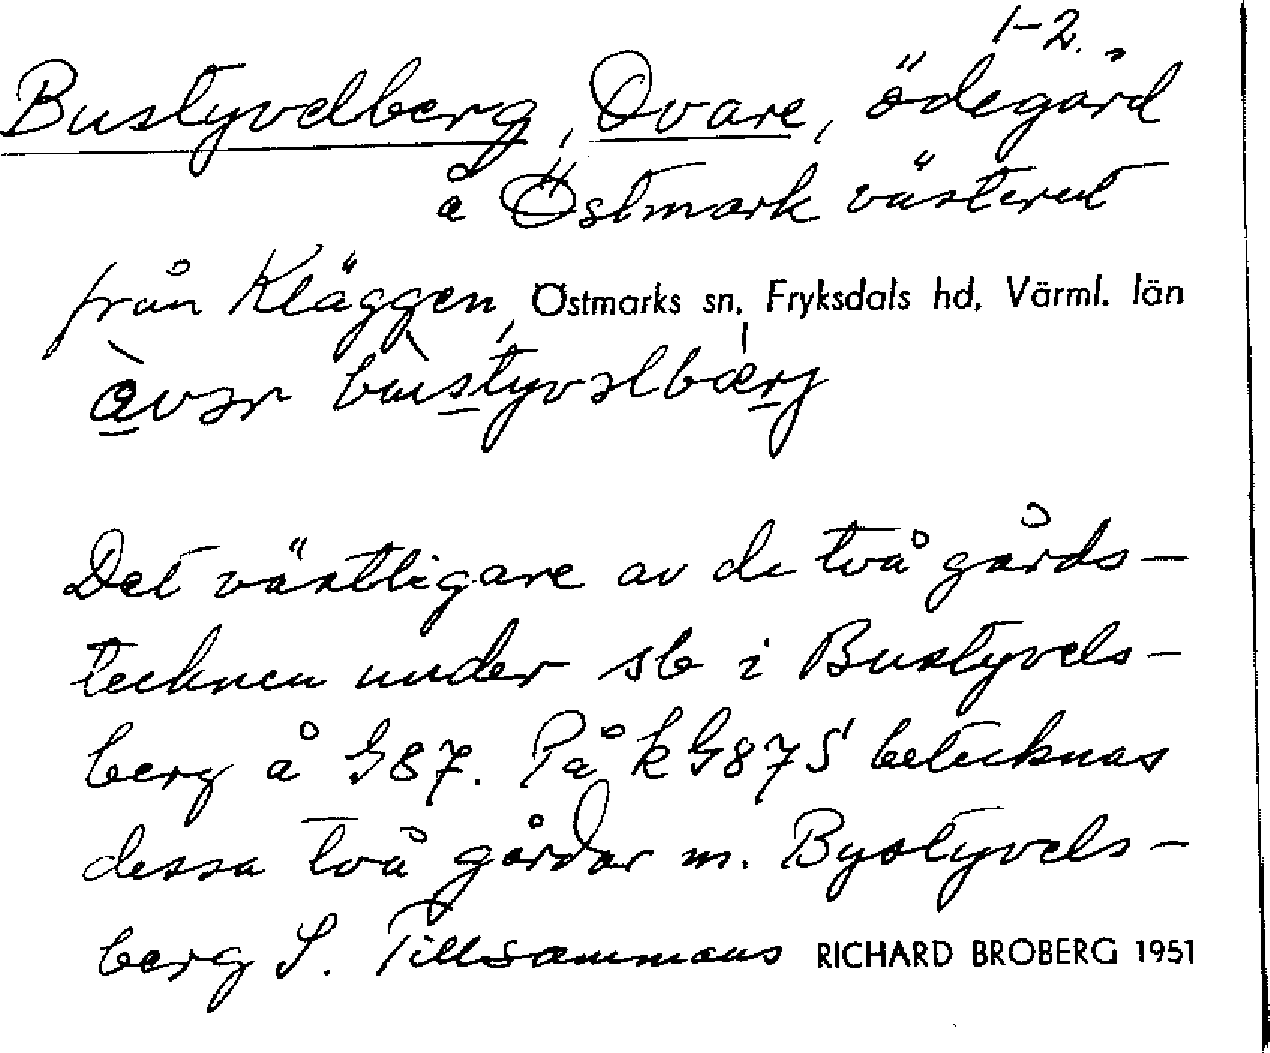 1-2.
Bustyvelberg, Ovare, ödegård
å Östmark västerut
från Kläggen, Östmarks sn, Fryksdals hd, Värml. län
Det västligare av de två gårds-
tecknen under sb i Bustyvels-
berg å G87. På k G87S betecknas
dessa två gårdar m. Bystyvels-
berg S. Tillsammans RICHARD BROBERG 1951